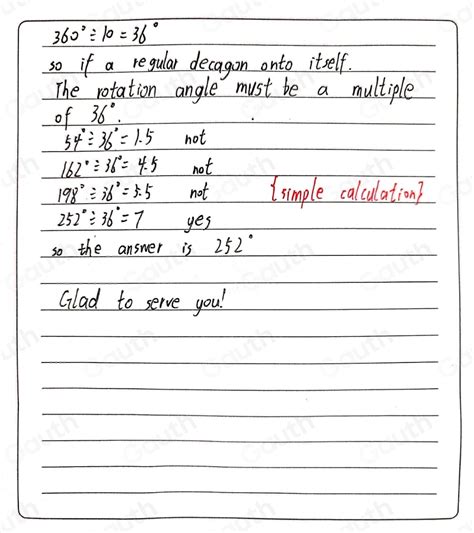 360° ÷ 10 = 36°
so if a regular decagon onto itself.
The rotation angle must be a multiple
of 36°.
54° ÷ 36° = 1.5 not
162° ÷ 36° = 4.5 not
198° ÷ 36° = 5.5 not {simple calculation}
252° ÷ 36° = 7 yes
so the answer is 252°
Glad to serve you!